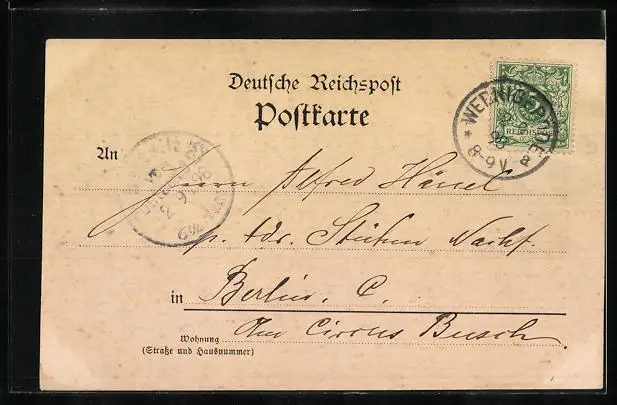 Deutsche Reichspost
Postkarte
WERNIGERODE
8-9V
REICHSPOST
An
Herrn Alfred Hänel
p. adr. Stuhm Nachf.
in Berlin. C.
Am Circus Busch.
Wohnung
(Straße und Hausnummer)